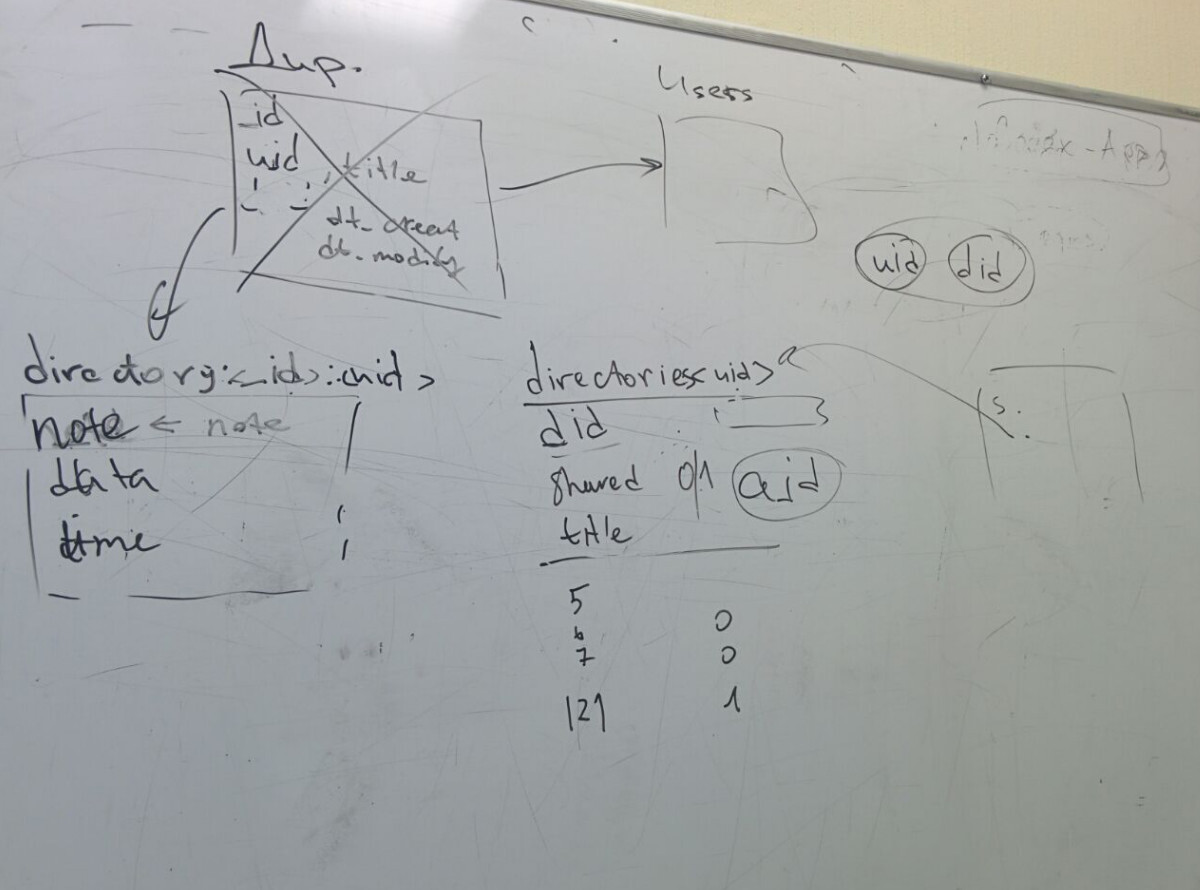 Дир.
_id
uid
title
dt_creat
dt_modify
Users
uid did
directory:<_id>:<uid>
note ← note
data
time
directories<uid>
did
shared 0/1 aid
title
5
6 0
7 0
121 1
s.